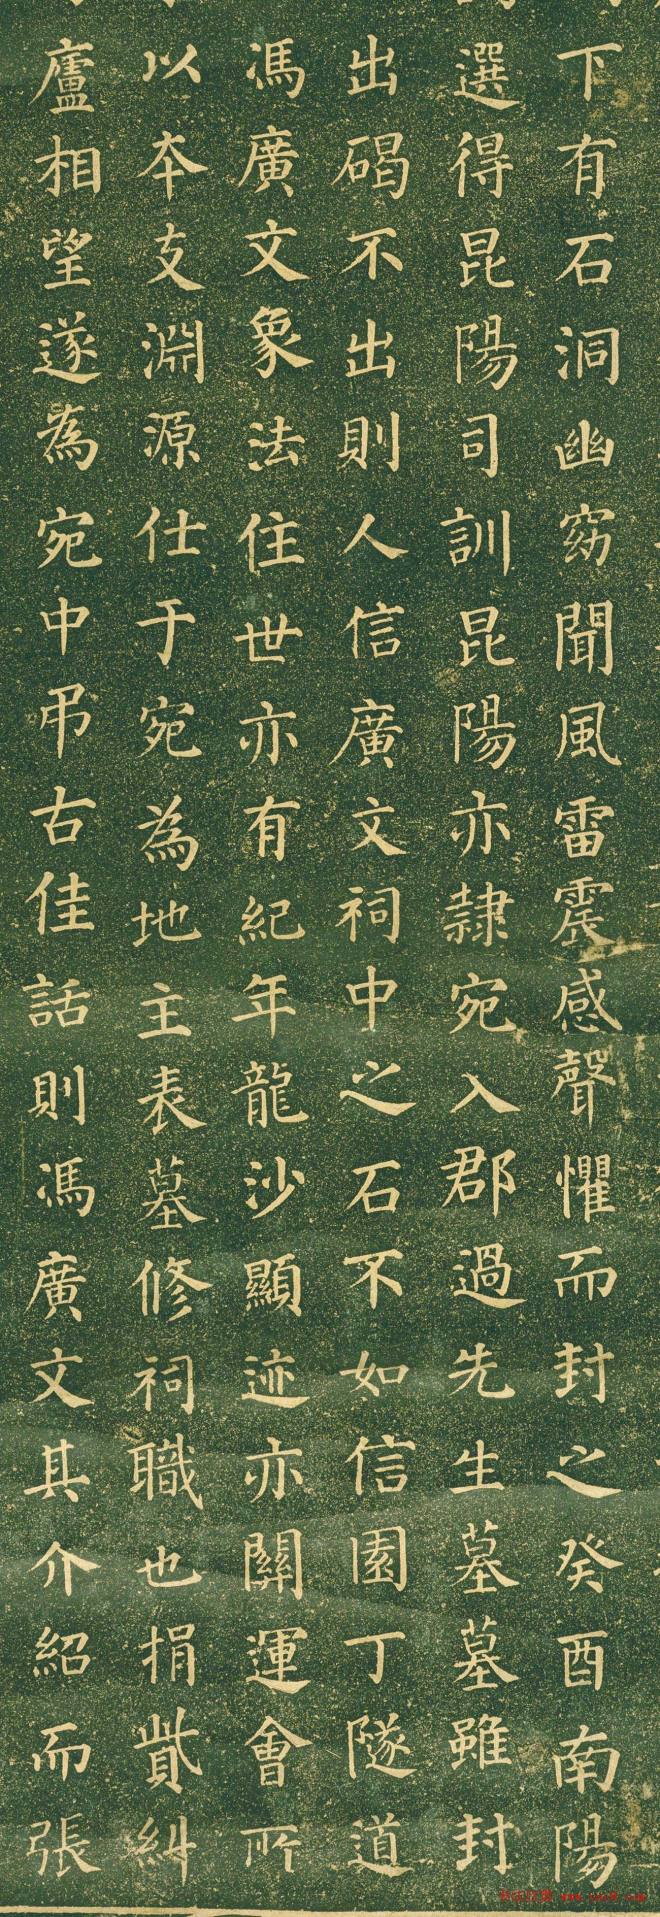 下有石洞幽窈聞風雷震感聲懼而封之癸酉南陽
選得昆陽司訓昆陽亦隸宛入郡過先生墓墓雖封
出碣不出則人信廣文祠中之石不如信園丁隧道
馮廣文象法住世亦有紀年龍沙顯迹亦關運會所
以本支淵源仕于宛為地主表墓修祠職也捐貲糾
廬相望遂為宛中弔古佳話則馮廣文其介紹而張